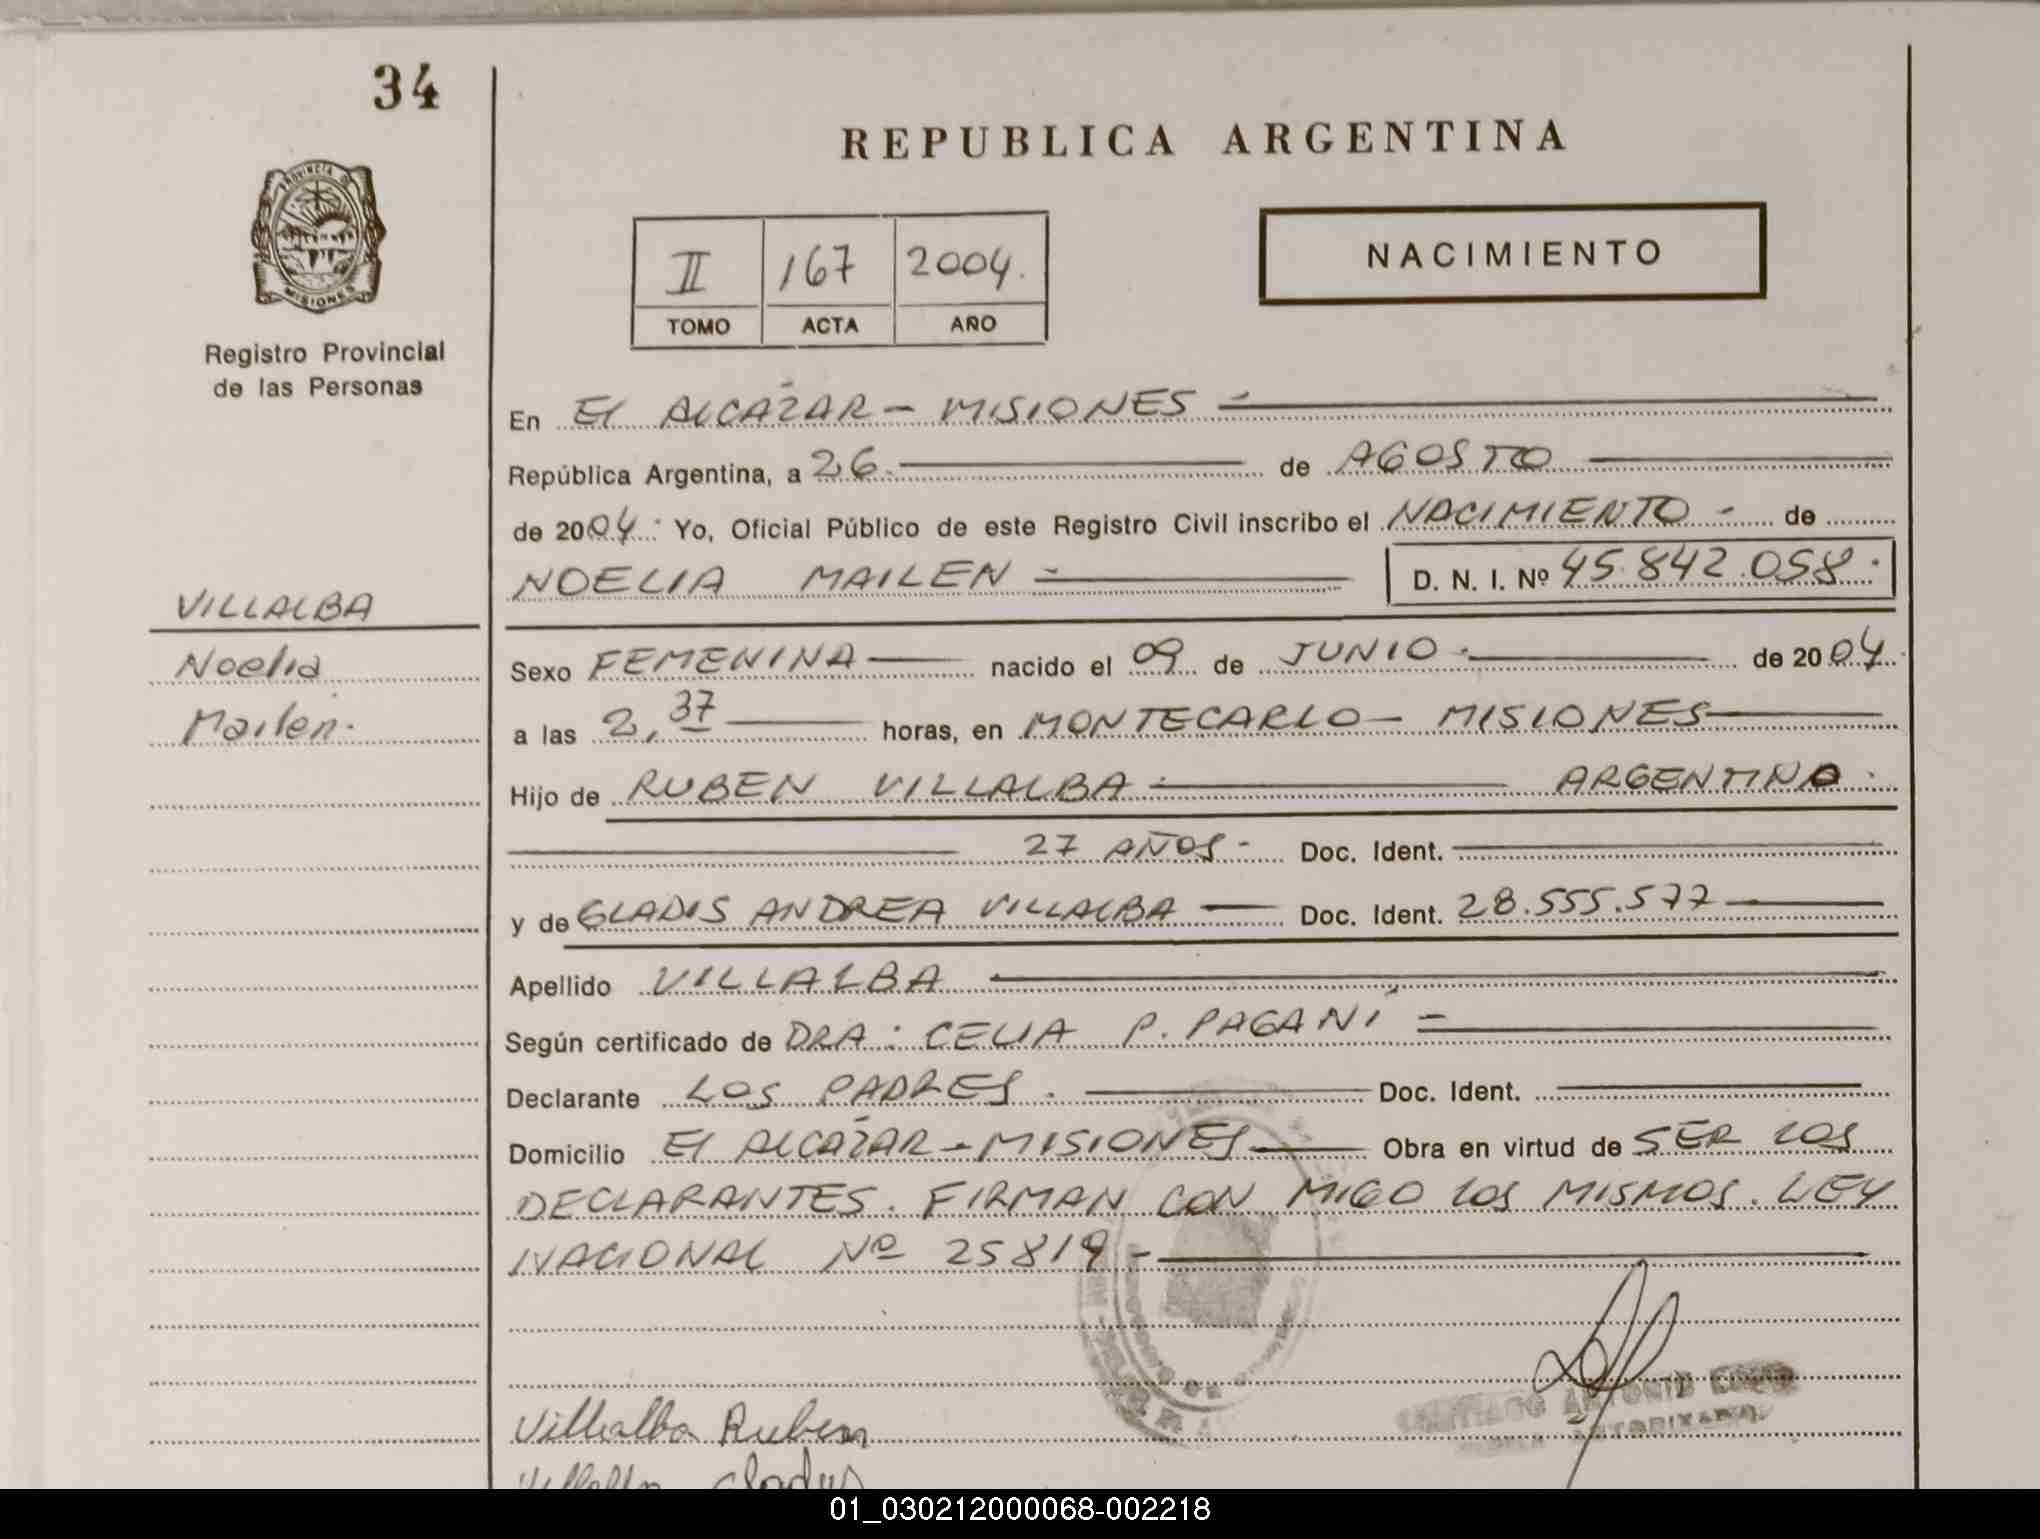 34
REPUBLICA ARGENTINA
PROVINCIA DE
MISIONES
Registro Provincial
de las Personas
II 167 2004.
TOMO ACTA AÑO
NACIMIENTO
En El ALCAZAR - MISIONES -
República Argentina, a 26. de AGOSTO
de 2004. Yo, Oficial Público de este Registro Civil inscribo el NACIMIENTO - de
NOELIA MAILEN - D. N. I. Nº 45.842.058.
VILLALBA
Noelia
Mailen.
Sexo FEMENINA nacido el 09 de JUNIO. de 2004.
a las 2,37 horas, en MONTECARLO - MISIONES
Hijo de RUBEN VILLALBA ARGENTINO.
27 AÑOS - Doc. Ident.
y de GLADIS ANDREA VILLALBA Doc. Ident. 28.555.577
Apellido VILLALBA
Según certificado de DRA: CELIA P. PAGANI -
Declarante LOS PADRES. Doc. Ident.
Domicilio El ALCAZAR - MISIONES Obra en virtud de SER LOS
DECLARANTES. FIRMAN CON MIGO LOS MISMOS. LEY
NACIONAL Nº 25819 -
SANTIAGO ANTONIO
Villalba Ruben
01_030212000068-002218